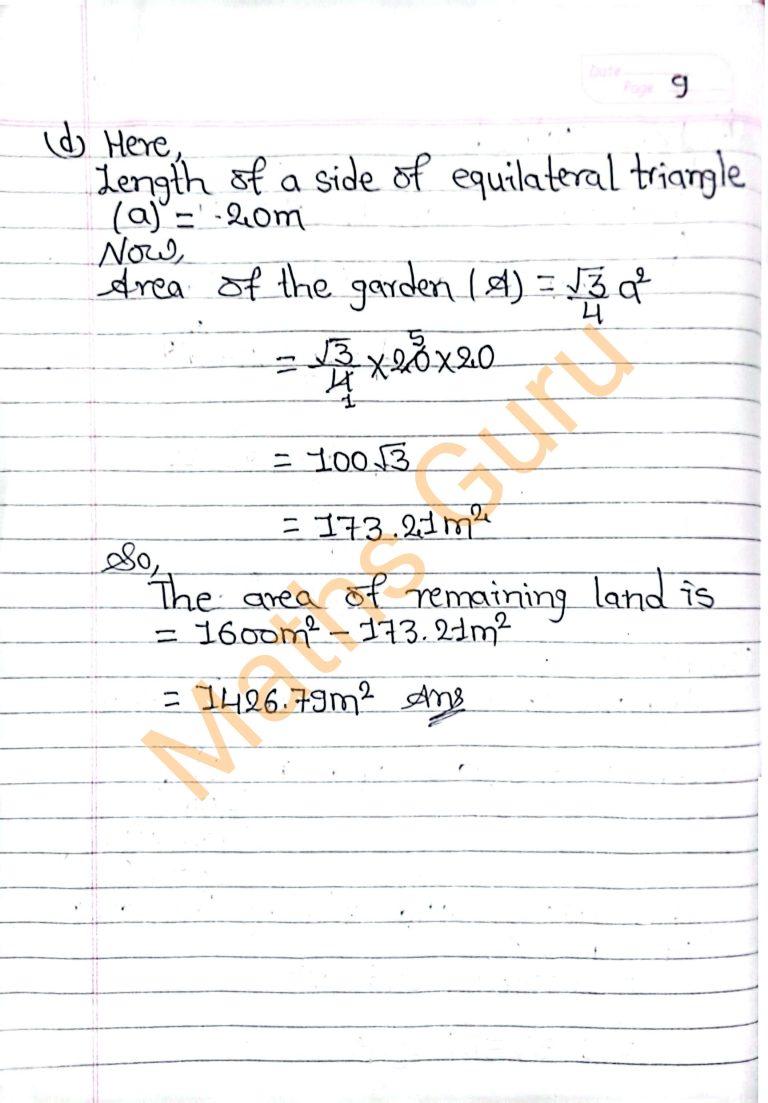 Date
Page 9
(d) Here,
Length of a side of equilateral triangle
(a) = 20m
Now,
Area of the garden (A) = √3/4 a²
= √3/4 × 20 × 20
5
1
= 100√3
= 173.21m²
So,
The area of remaining land is
= 1600m² - 173.21m²
= 1426.79m² Ans
Maths Guru